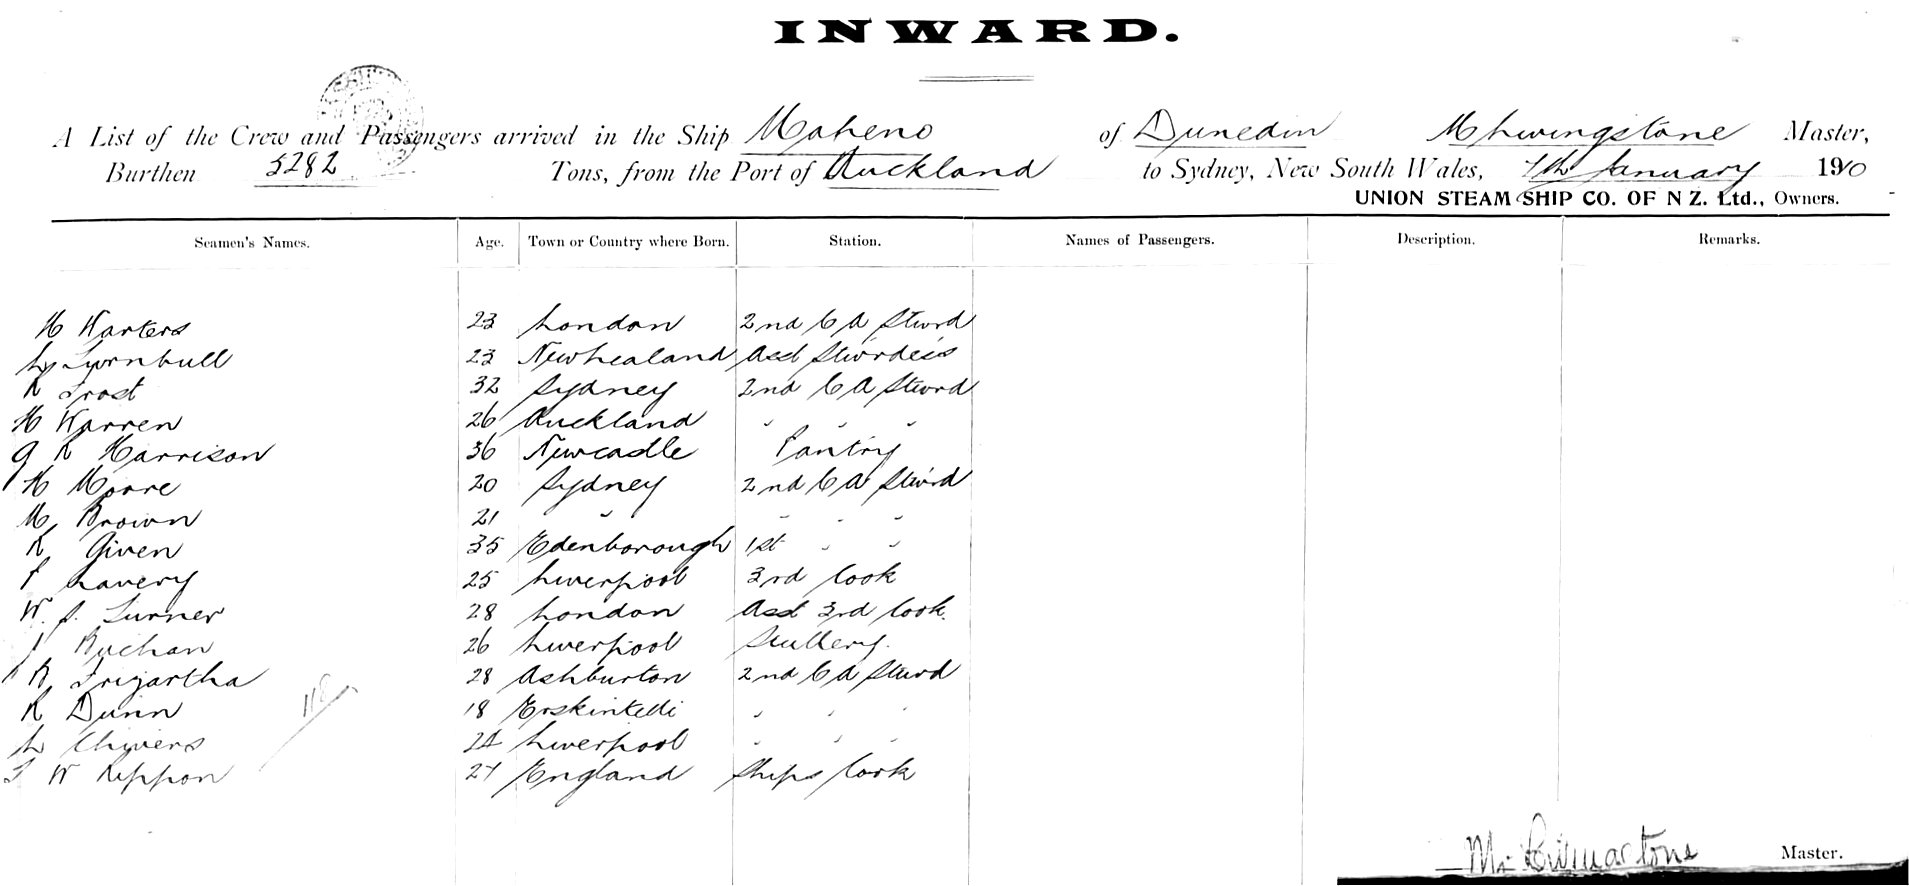 INWARD.
A List of the Crew and Passengers arrived in the Ship Maheno of Dunedin M Livingstone Master,
Burthen 5282 Tons, from the Port of Auckland to Sydney, New South Wales, 7th January 1910
UNION STEAM SHIP CO. OF N Z. Ltd., Owners.
Seamen's Names. Age. Town or Country where Born. Station. Names of Passengers. Description. Remarks.
H Warters 23 London 2nd C A Stwrd
Ly Turnbull 23 New Zealand Asst Stwrdess
R Frost 32 Sydney 2nd C A Stwrd
H Warren 26 Auckland " " "
G R Harrison 36 Newcastle Pantry
H Moore 20 Sydney 2nd C A Stwrd
M Brown 21 " " " "
R Given 35 Edenborough 1st " "
P Lavery 25 Liverpool 3rd Cook
W. J. Turner 28 London Asst 3rd Cook.
J Buchan 26 Liverpool Scullery.
B Trigartha 28 Ashburton 2nd C A Stwrd
R Dunn 18 " " "
L Chivers 24 Liverpool " " "
T W Rippon 27 England Ships Cook
Master.